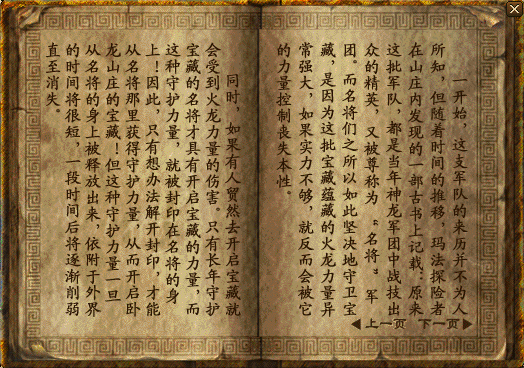 一开始，这支军队的来历并不为人
所知，但随着时间的推移，玛法探险者
在山庄内发现的一部古书上记载：原来
这批军队，都是当年神龙军团中战技出
众的精英，又被尊称为“名将”军
团。而名将们之所以如此坚决地守卫宝
藏，是因为这批宝藏蕴藏的火龙力量异
常强大，如果实力不够，就反而会被它
的力量控制丧失本性。
同时，如果有人贸然去开启宝藏就
会受到火龙力量的伤害。只有长年守护
宝藏的名将才具有开启宝藏的力量，而
这种守护力量，就被封印在名将的身
上！因此，只有想办法解开封印，才能
从名将那里获得守护力量，从而开启卧
龙山庄的宝藏！但这种守护力量一旦
从名将的身上被释放出来，依附于外界
的时间将很短，一段时间后将逐渐削弱
直至消失。
◀上一页 下一页▶